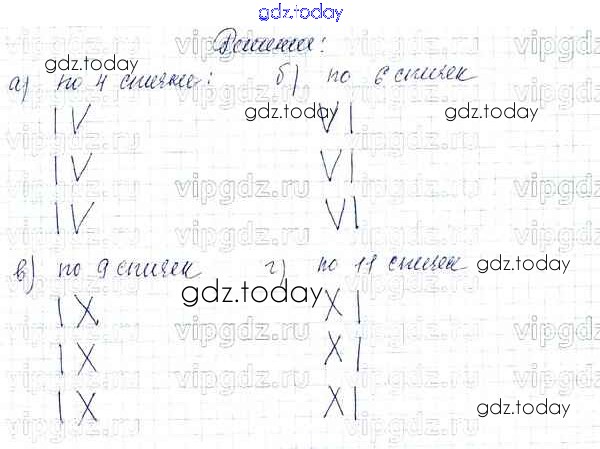 gdz.today
Решение:
gdz.today
а) по 4 спички: б) по 6 спичек
gdz.today gdz.today
IV VI
vipgdz.ru vipgdz.ru
IV VI
vipgdz.ru vipgdz.ru
IV VI
vipgdz.ru vipgdz.ru
в) по 9 спичек г) по 11 спичек
gdz.today
gdz.today
IX XI
vipgdz.ru vipgdz.ru
IX XI
vipgdz.ru vipgdz.ru
IX XI
gdz.today
vipgdz.ru vipgdz.ru